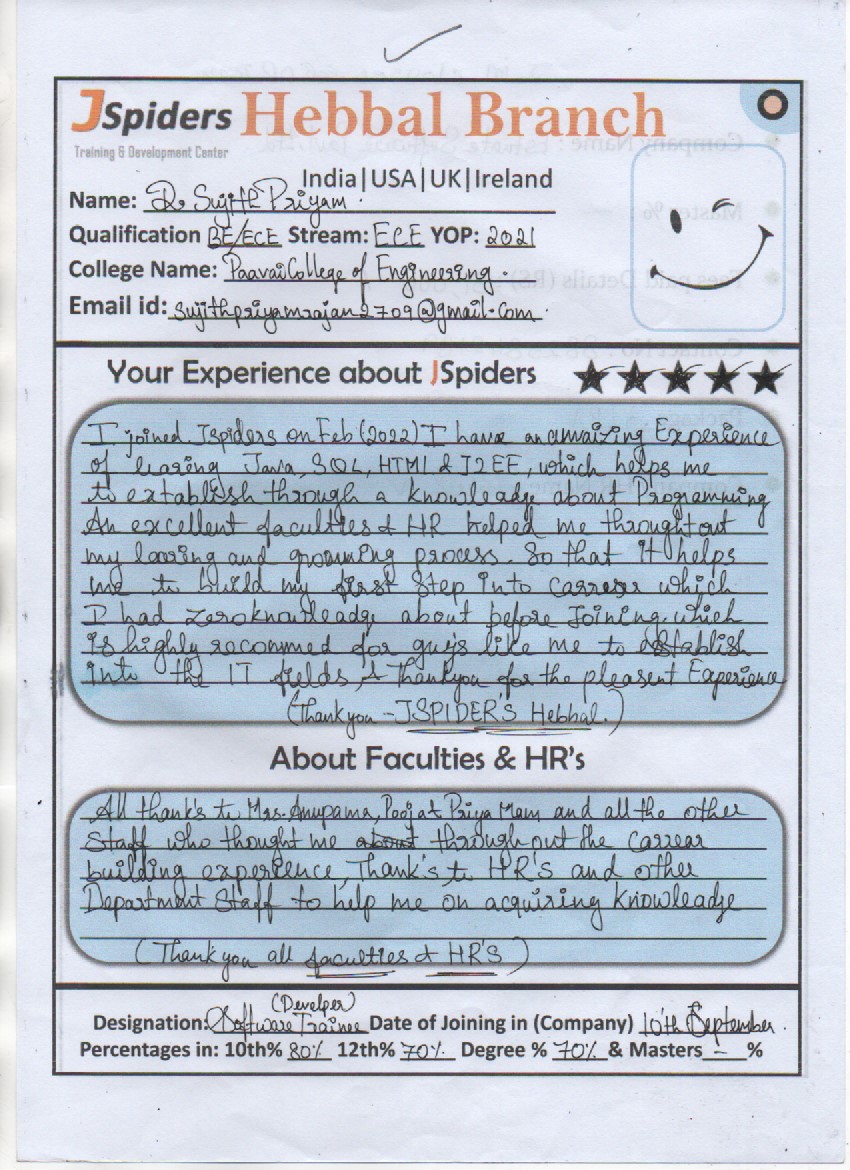 JSpiders Hebbal Branch
Training & Development Center
India|USA|UK|Ireland
Name: R. Sujith Priyam.
Qualification BE/ECE Stream: ECE YOP: 2021
College Name: Paavai College of Engineering
Email id: sujithpriyamrajan2709@gmail.com.
Your Experience about JSpiders
I joined Jspiders on Feb (2022) I have an amaizing Experience
of learing Java, SQL, HTMl & J2EE, which helps me
to establish through a knowleadge about Programming
An excellent faculties & HR helped me throughtout
my learing and grooming process. So that it helps
me to build my first Step into Carrear which
I had zero knowleadge about before Joining, which
is highly recommed for guy's like me to establish
into the IT fields, & Thankyou for the pleasent Experience
(Thankyou - JSPIDER'S Hebbal.)
About Faculties & HR's
All thank's to Mrs. Anupama, Pooja & Priya Mam and all the other
Staff who thought me about through out the Carrear
building experience, Thank's to HR'S and other
Department Staff to help me on acquiring Knowleadge
(Thankyou all faculties & HR'S)
(Develper)
Designation: Software Trainee Date of Joining in (Company) 10'th September.
Percentages in: 10th% 80% 12th% 70% Degree % 70% & Masters - %